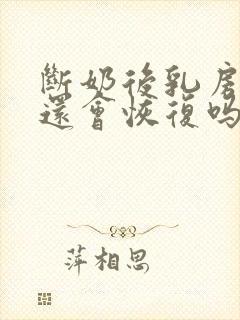 斷奶後乳房
還會恢復嗎
萍相思